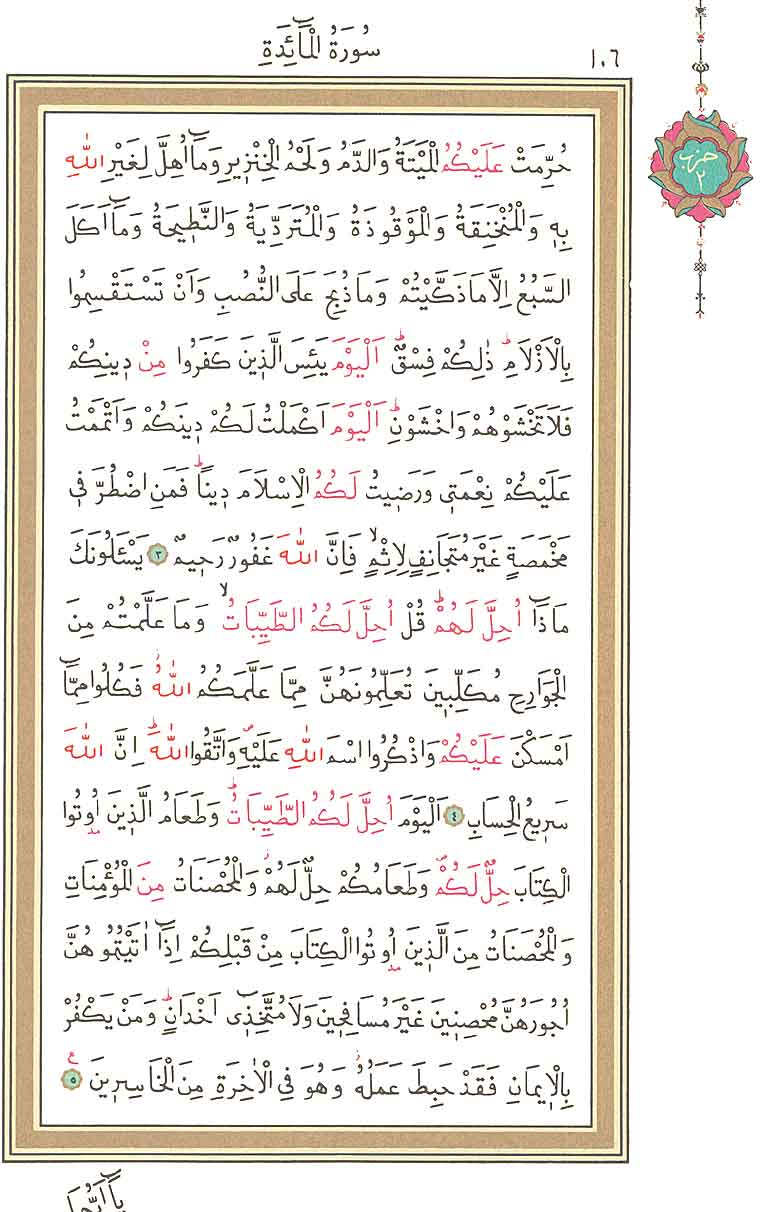 ١٠٦
سُورَةُ الْمَٓائِدَةِ
حزب
٢
حُرِّمَتْ عَلَيْكُمُ الْمَيْتَةُ وَالدَّمُ وَلَحْمُ الْخِنْزٖيرِ وَمَٓا اُهِلَّ لِغَيْرِ اللّٰهِ
بِهٖ وَالْمُنْخَنِقَةُ وَالْمَوْقُوذَةُ وَالْمُتَرَدِّيَةُ وَالنَّطٖيحَةُ وَمَٓا اَكَلَ
السَّبُعُ اِلَّا مَا ذَكَّيْتُمْ وَمَا ذُبِحَ عَلَى النُّصُبِ وَاَنْ تَسْتَقْسِمُوا
بِالْاَزْلَامِۜ ذٰلِكُمْ فِسْقٌۜ اَلْيَوْمَ يَئِسَ الَّذٖينَ كَفَرُوا مِنْ دٖينِكُمْ
فَلَا تَخْشَوْهُمْ وَاخْشَوْنِۜ اَلْيَوْمَ اَكْمَلْتُ لَكُمْ دٖينَكُمْ وَاَتْمَمْتُ
عَلَيْكُمْ نِعْمَتٖى وَرَضٖيتُ لَكُمُ الْاِسْلَامَ دٖينًاۜ فَمَنِ اضْطُرَّ فٖى
مَخْمَصَةٍ غَيْرَ مُتَجَانِفٍ لِاِثْمٍۙ فَاِنَّ اللّٰهَ غَفُورٌ رَحٖيمٌ ٣ يَسْـَٔلُونَكَ
مَاذَٓا اُحِلَّ لَهُمْۜ قُلْ اُحِلَّ لَكُمُ الطَّيِّبَاتُۙ وَمَا عَلَّمْتُمْ مِنَ
الْجَوَارِحِ مُكَلِّبٖينَ تُعَلِّمُونَهُنَّ مِمَّا عَلَّمَكُمُ اللّٰهُؗ فَكُلُوا مِمَّٓا
اَمْسَكْنَ عَلَيْكُمْ وَاذْكُرُوا اسْمَ اللّٰهِ عَلَيْهِࣕ وَاتَّقُوا اللّٰهَۜ اِنَّ اللّٰهَ
سَرٖيعُ الْحِسَابِ ٤ اَلْيَوْمَ اُحِلَّ لَكُمُ الطَّيِّبَاتُۜ وَطَعَامُ الَّذٖينَ اُوتُوا
الْكِتَابَ حِلٌّ لَكُمْࣕ وَطَعَامُكُمْ حِلٌّ لَهُمْؗ وَالْمُحْصَنَاتُ مِنَ الْمُؤْمِنَاتِ
وَالْمُحْصَنَاتُ مِنَ الَّذٖينَ اُوتُوا الْكِتَابَ مِنْ قَبْلِكُمْ اِذَٓا اٰتَيْتُمُوهُنَّ
اُجُورَهُنَّ مُحْصِنٖينَ غَيْرَ مُسَافِحٖينَ وَلَا مُتَّخِذٖٓى اَخْدَانٍۜ وَمَنْ يَكْفُرْ
بِالْاٖيمَانِ فَقَدْ حَبِطَ عَمَلُهُؗ وَهُوَ فِى الْاٰخِرَةِ مِنَ الْخَاسِرٖينَ ٥
يَٓا اَيُّهَا